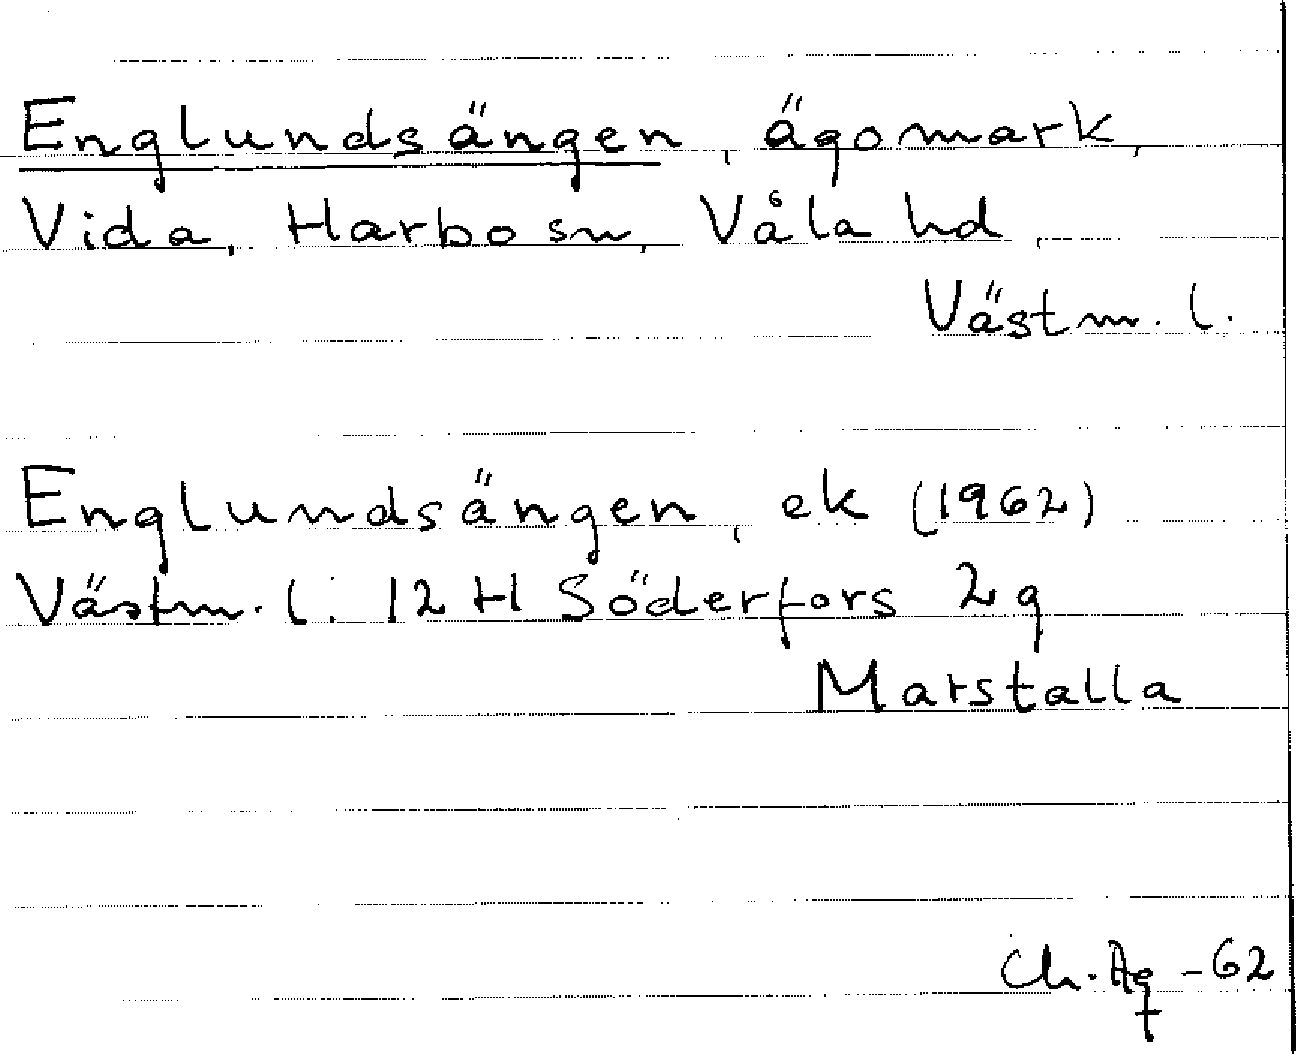 Englundsängen, ägomark,
Vida, Harbo sn, Våla hd,
Västm. l.
Englundsängen, ek (1962)
Västm. l. 12 H Söderfors 2 g
Marstalla
Ch. -62